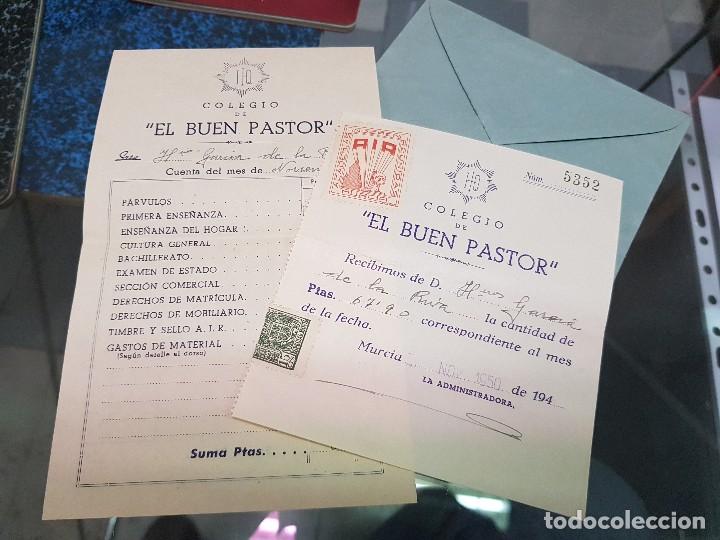 COLEGIO
DE
"EL BUEN PASTOR"
Hnos Garcia de la
Cuenta del mes de Noviem
PÁRVULOS
PRIMERA ENSEÑANZA.
ENSEÑANZA DEL HOGAR
CULTURA GENERAL
BACHILLERATO.
EXAMEN DE ESTADO
SECCIÓN COMERCIAL
DERECHOS DE MATRÍCULA.
DERECHOS DE MOBILIARIO.
TIMBRE Y SELLO A. I. R.
GASTOS DE MATERIAL
(Según detalle al dorso)
Suma Ptas.
AIR
Núm. 5352
COLEGIO
DE
"EL BUEN PASTOR"
Recibimos de D. Hnos Garcia
de la Riva la cantidad de
Ptas. 67'90 correspondiente al mes
de la fecha.
Murcia NOV. 1950 de 194
LA ADMINISTRADORA,
todocoleccion